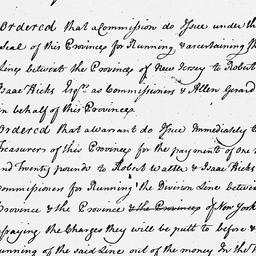 Ordered that a Commission do Issue under the
Seal of this Province for Running & ascertaining th
Line between the Province of New Jersey to Robert
Isaac Hicks Esqrs. as Commissioners & Allen Gerard
in behalf of this Province
Ordered that a warrant do Issue Immediately to
Treasurer of this Province for the payment of one
and Twenty pounds to Robert Walter & Isaac Hicks
Commissioners for Running the Division Line betwee
Province & the Province & the Province of New York
efraying the Charges they will be putt to before &
unning of the said Line out of the money In the